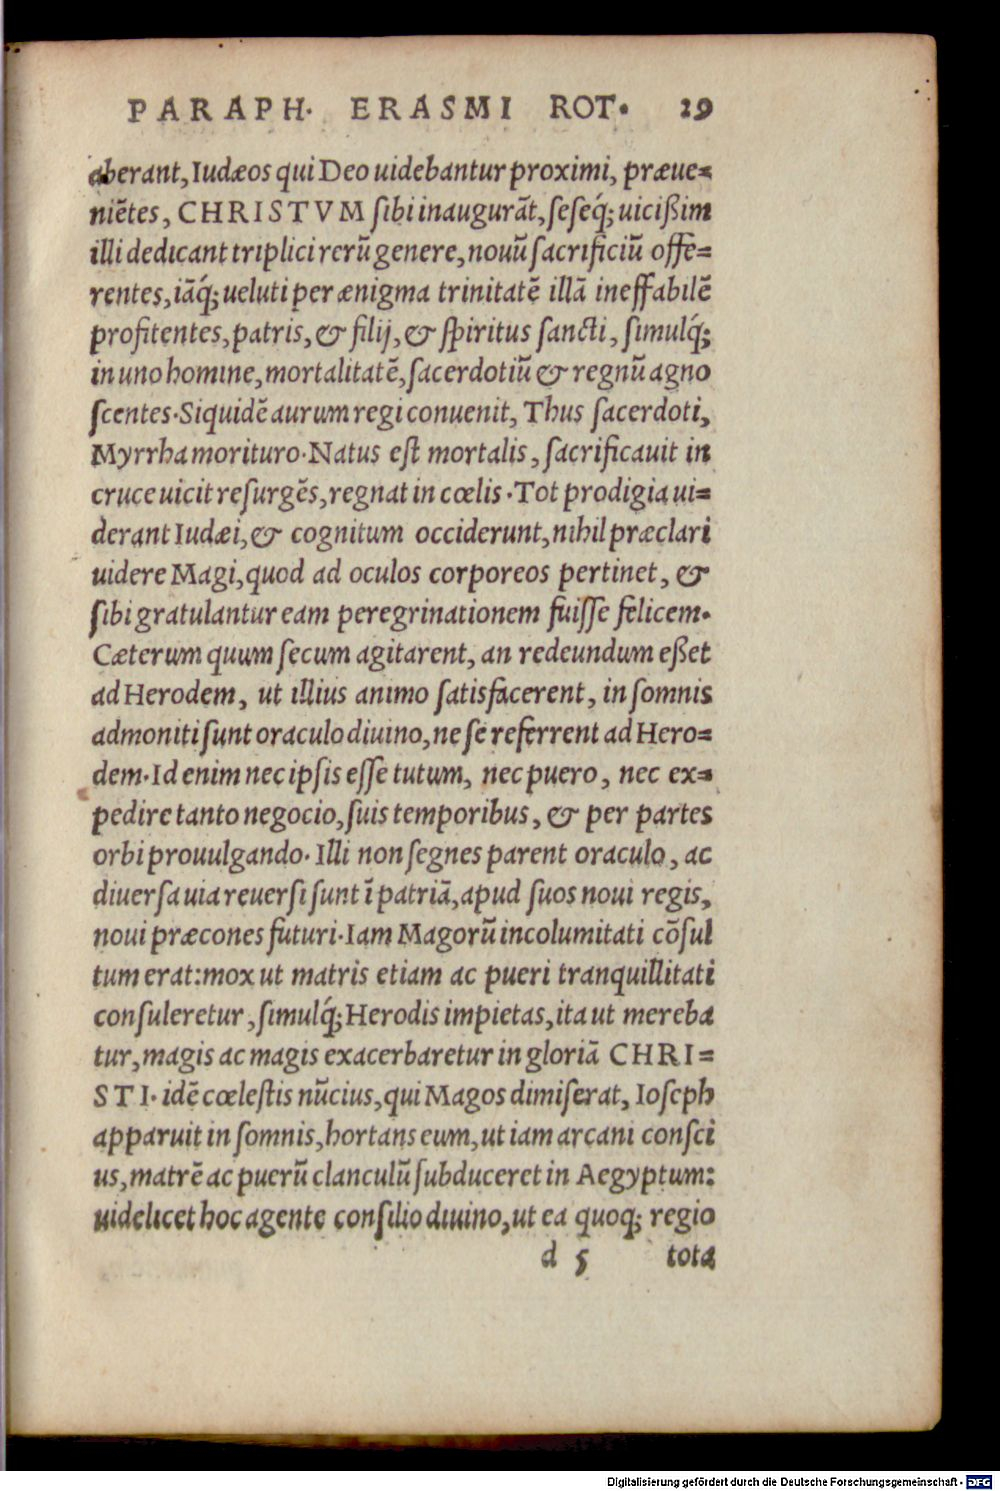 PARAPH. ERASMI ROT. 29
aberant, Iudæos qui Deo uidebantur proximi, præue=
niẽtes, CHRISTVM sibi inaugurãt, seseq́; uicißim
illi dedicant triplici rerũ genere, nouũ sacrificiũ offe=
rentes, iãq́; ueluti per ænigma trinitatẽ illã ineffabilẽ
profitentes, patris, & filij, & spiritus sancti, simulq́;
in uno homine, mortalitatẽ, sacerdotiũ & regnũ agno
scentes. Siquidẽ aurum regi conuenit, Thus sacerdoti,
Myrrha morituro. Natus est mortalis, sacrificauit in
cruce uicit resurgẽs, regnat in cœlis. Tot prodigia ui=
derant Iudæi, & cognitum occiderunt, nihil præclari
uidere Magi, quod ad oculos corporeos pertinet, &
sibi gratulantur eam peregrinationem fuisse felicem.
Cæterum quum secum agitarent, an redeundum eßet
ad Herodem, ut illius animo satisfacerent, in somnis
admoniti sunt oraculo diuino, ne se referrent ad Hero=
dem. Id enim nec ipsis esse tutum, nec puero, nec ex=
pedire tanto negocio, suis temporibus, & per partes
orbi prouulgando. Illi non segnes parent oraculo, ac
diuersa uia reuersi sunt ĩ patriã, apud suos noui regis,
noui præcones futuri. Iam Magorũ incolumitati cõsul
tum erat: mox ut matris etiam ac pueri tranquillitati
consuleretur, simulq́; Herodis impietas, ita ut mereba
tur, magis ac magis exacerbaretur in gloriã CHRI=
STI. idẽ cœlestis nũcius, qui Magos dimiserat, Ioseph
apparuit in somnis, hortans eum, ut iam arcani consci
us, matrẽ ac puerũ clanculũ subduceret in Aegyptum:
uidelicet hoc agente consilio diuino, ut ea quoq; regio
d 5 tota
Digitalisierung gefördert durch die Deutsche Forschungsgemeinschaft - DFG